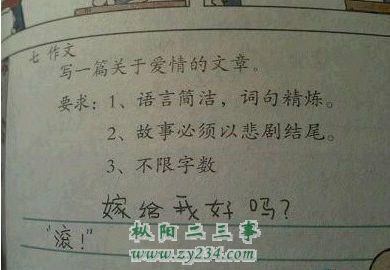 七 作文
写一篇关于爱情的文章。
要求：1、语言简洁，词句精炼。
2、故事必须以悲剧结尾。
3、不限字数
嫁给我好吗？
“滚！”
枞阳二三事
www.zy234.com